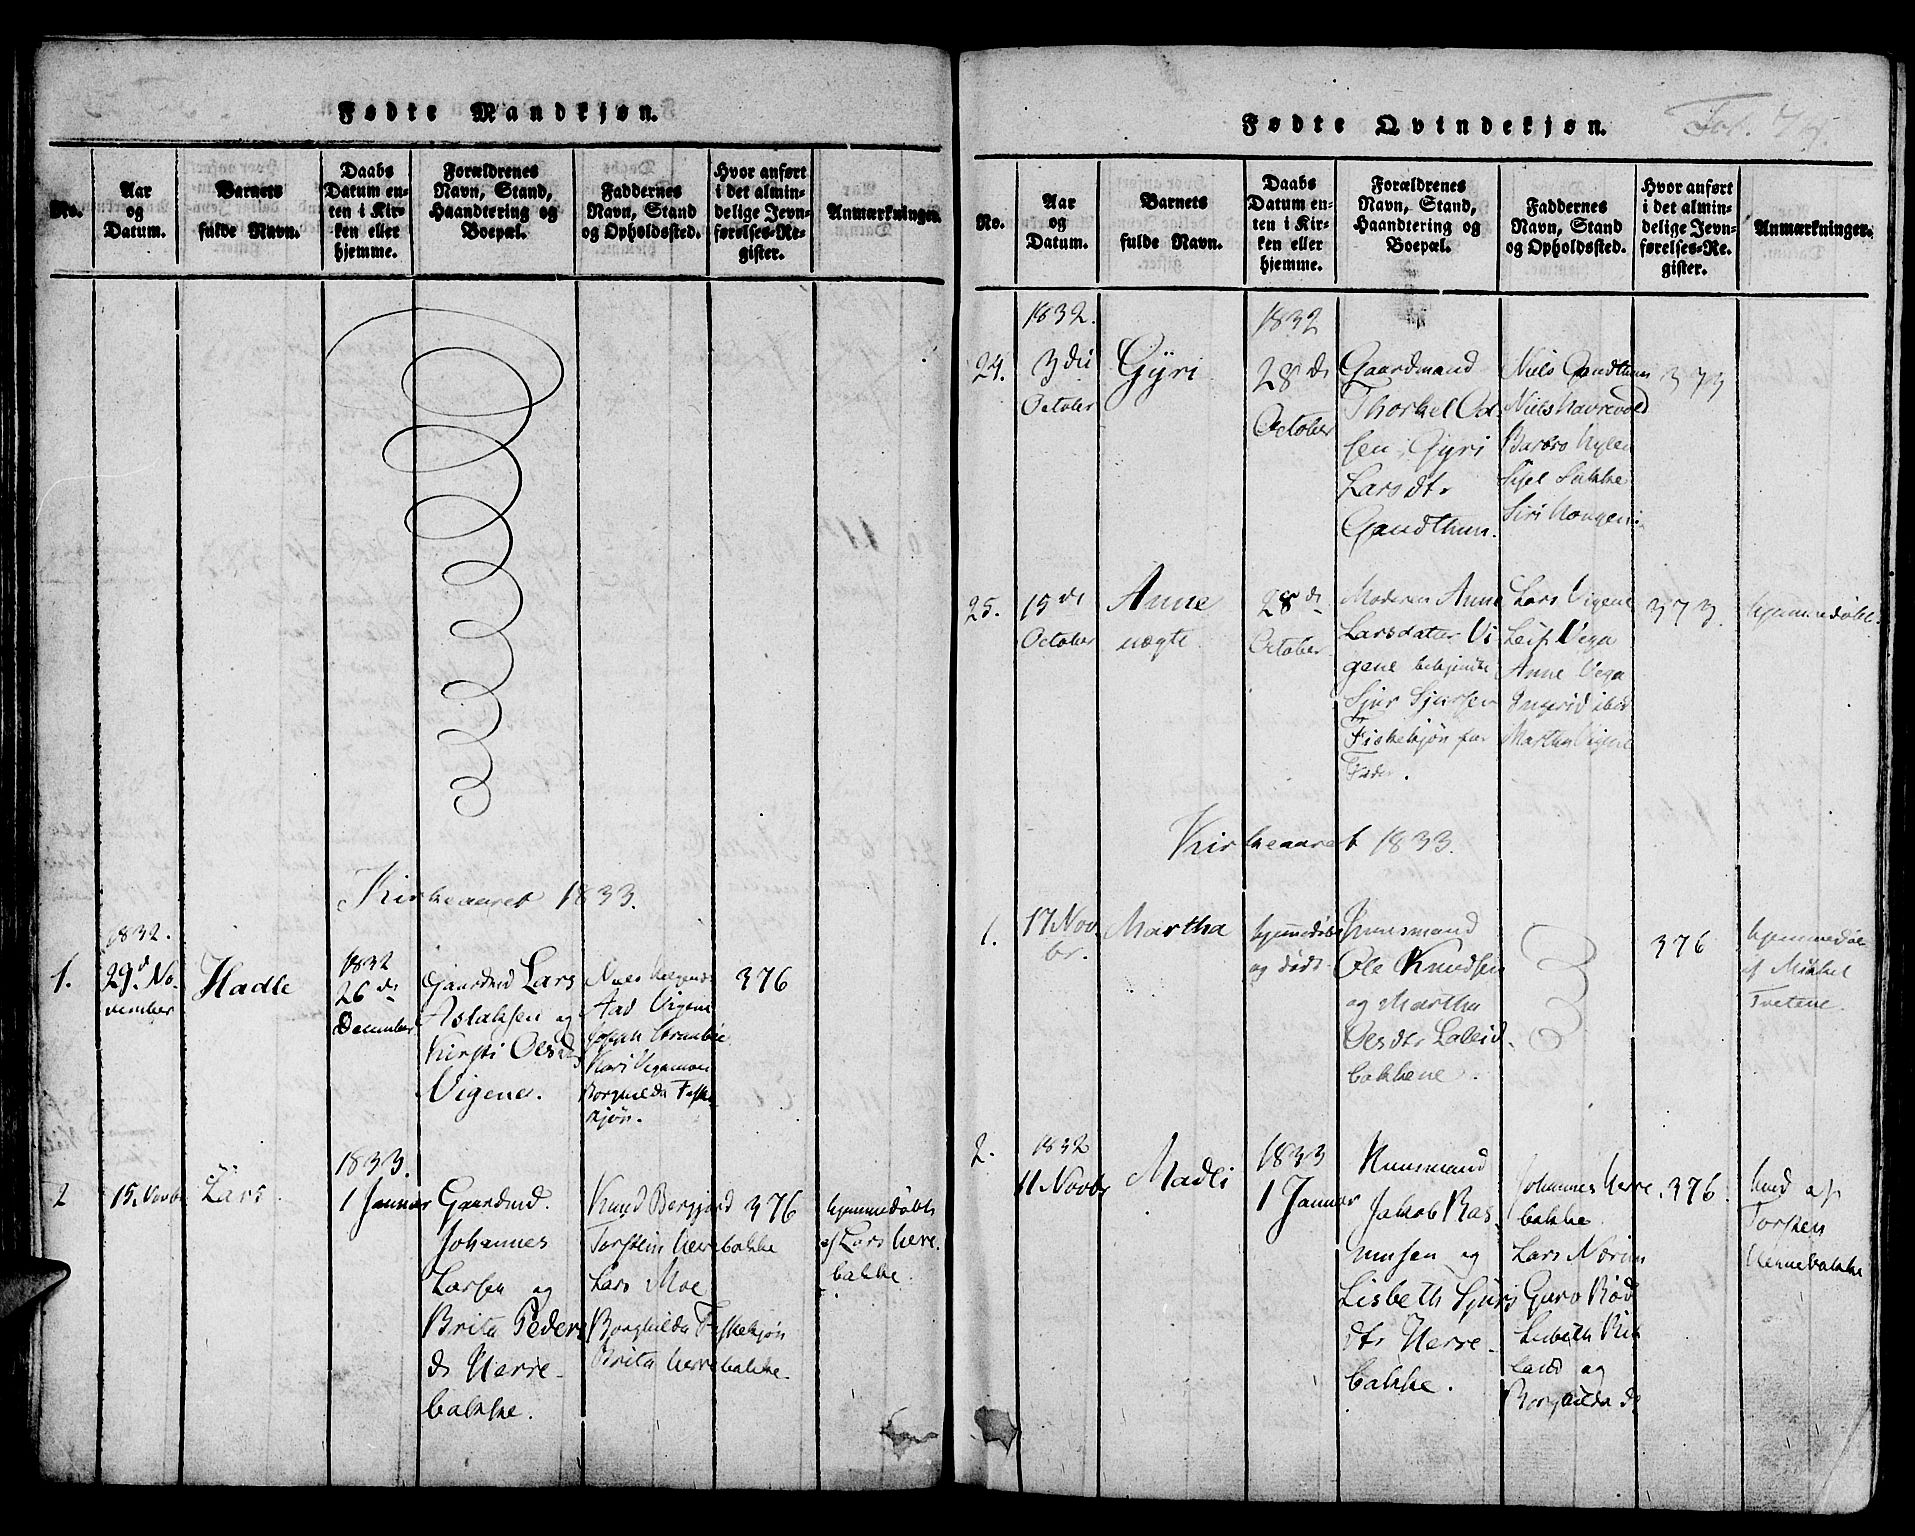 Fødte Mandkjøn.
No.
Aar og Datum.
Barnets fulde Navn.
Daabs Datum enten i Kirken eller hjemme.
Forældrenes Navn, Stand, Haandtering og Boepæl.
Faddernes Navn, Stand og Opholdssted.
Hvor anført i det almindelige Jevnførelses-Register.
Anmærkninger.
Kirkeaaret 1833.
1832.
1.
29d. No-
vember
Hadle
1832
26 de
December
Gaardmd Lars
Aslaksen og
Kirsti Olsd
Vigene.
Aad Vigene
Kari Vigamoe
Borghilda Fiske-
kjøn.
376
2
15. Novb
Lars
1833.
1 Januar
Gaardmd.
Johannes
Larsen og
Brita Peders
dr Herre-
bakke.
Knud Bergjord
Torstein Herrebakke
Lars Moe
Borghilda Fiskekjøn
Brita Herrebakke.
376
hjemmedøbt
af Lars Herre-
bakke.
Fødte Qvindekjøn.
Fol.
No.
Aar og Datum.
Barnets fulde Navn.
Daabs Datum enten i Kirken eller hjemme.
Forældrenes Navn, Stand, Haandtering og Boepæl.
Faddernes Navn, Stand og Opholdssted.
Hvor anført i det almindelige Jevnførelses-Register.
Anmærkninger.
1832.
24.
3die
October
Gyri
1832
28 de
October
Gaardmand
Thorkel Ol-
sen, Gyri
Larsdtr
Gandthun.
Niels Gandthun
Niels Havrevold
Barbro Hylen
Sigel Sukke
Siri Hougen
373
25.
15 de
October
Anne
uægte
28 de
October
Moderen Anne
Larsdatter Vi
gene bekjendte
Sjur Sjursen
Fiskekjøn for
Fader.
Lars Vigene
Leif Vega
Anne Vega
Ingerid ibid
Martha Vigene
373.
hjemmedøbt.
Kirkeaaret 1833.
1.
17 Nov
br.
Martha
hjemmedøbt
og død
Huusmand
Ole Knudsen
og Martha
Olsdtr Laleid-
bakkene.
376
hjemmedøbt
af Mikkel
Tvetene.
2.
1832
11 Novbr
Madli
1833
1 Januar
Huusmand
Jakob Ras-
musen og
Lisbeth Sjurs
dtr Herre-
bakke.
Johannes Herre-
bakke
Lars Norim
Guro Rød
Lisbeth
land og
Borghilda
376.
hmd af
Torsten
Herrebakke